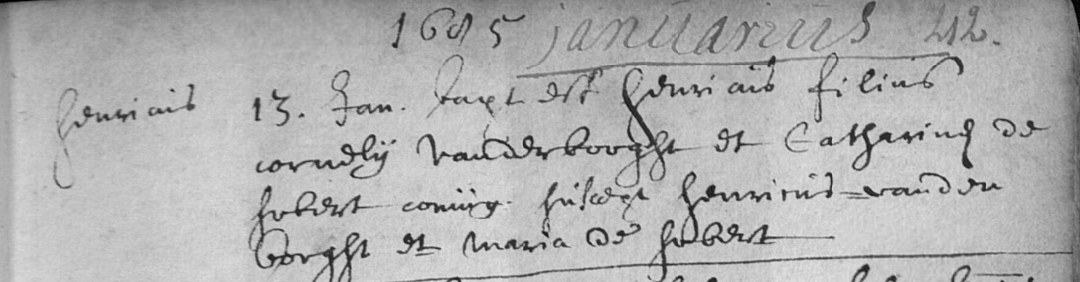 1685 januarius 212.
henricus 13. Jan. bapt est henricus filius
cornelij vanderborght et Catharinę de
hobert coniūg. suscept henricus=vanden
borght et maria de hobert